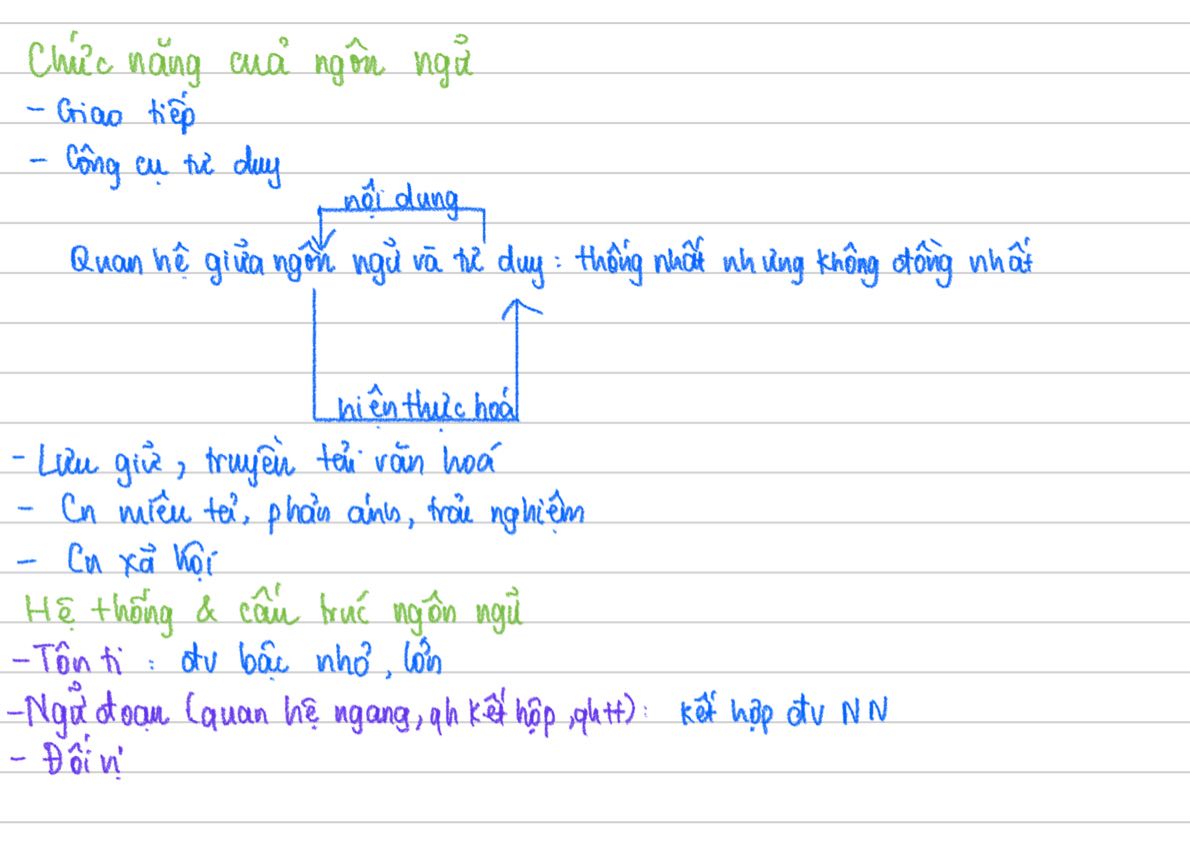 Chức năng của ngôn ngữ
- Giao tiếp
- Công cụ tư duy
nội dung
Quan hệ giữa ngôn ngữ và tư duy : thống nhất nhưng không đồng nhất
hiện thực hoá
- Lưu giữ, truyền tải văn hoá
- Cn miêu tả, phản ánh, trải nghiệm
- Cn xã hội
Hệ thống & cấu trúc ngôn ngữ
- Tôn ti : đv bậc nhỏ, lớn
- Ngữ đoạn (quan hệ ngang, qh kết hợp, qhtt) : kết hợp đv NN
- Đối vị